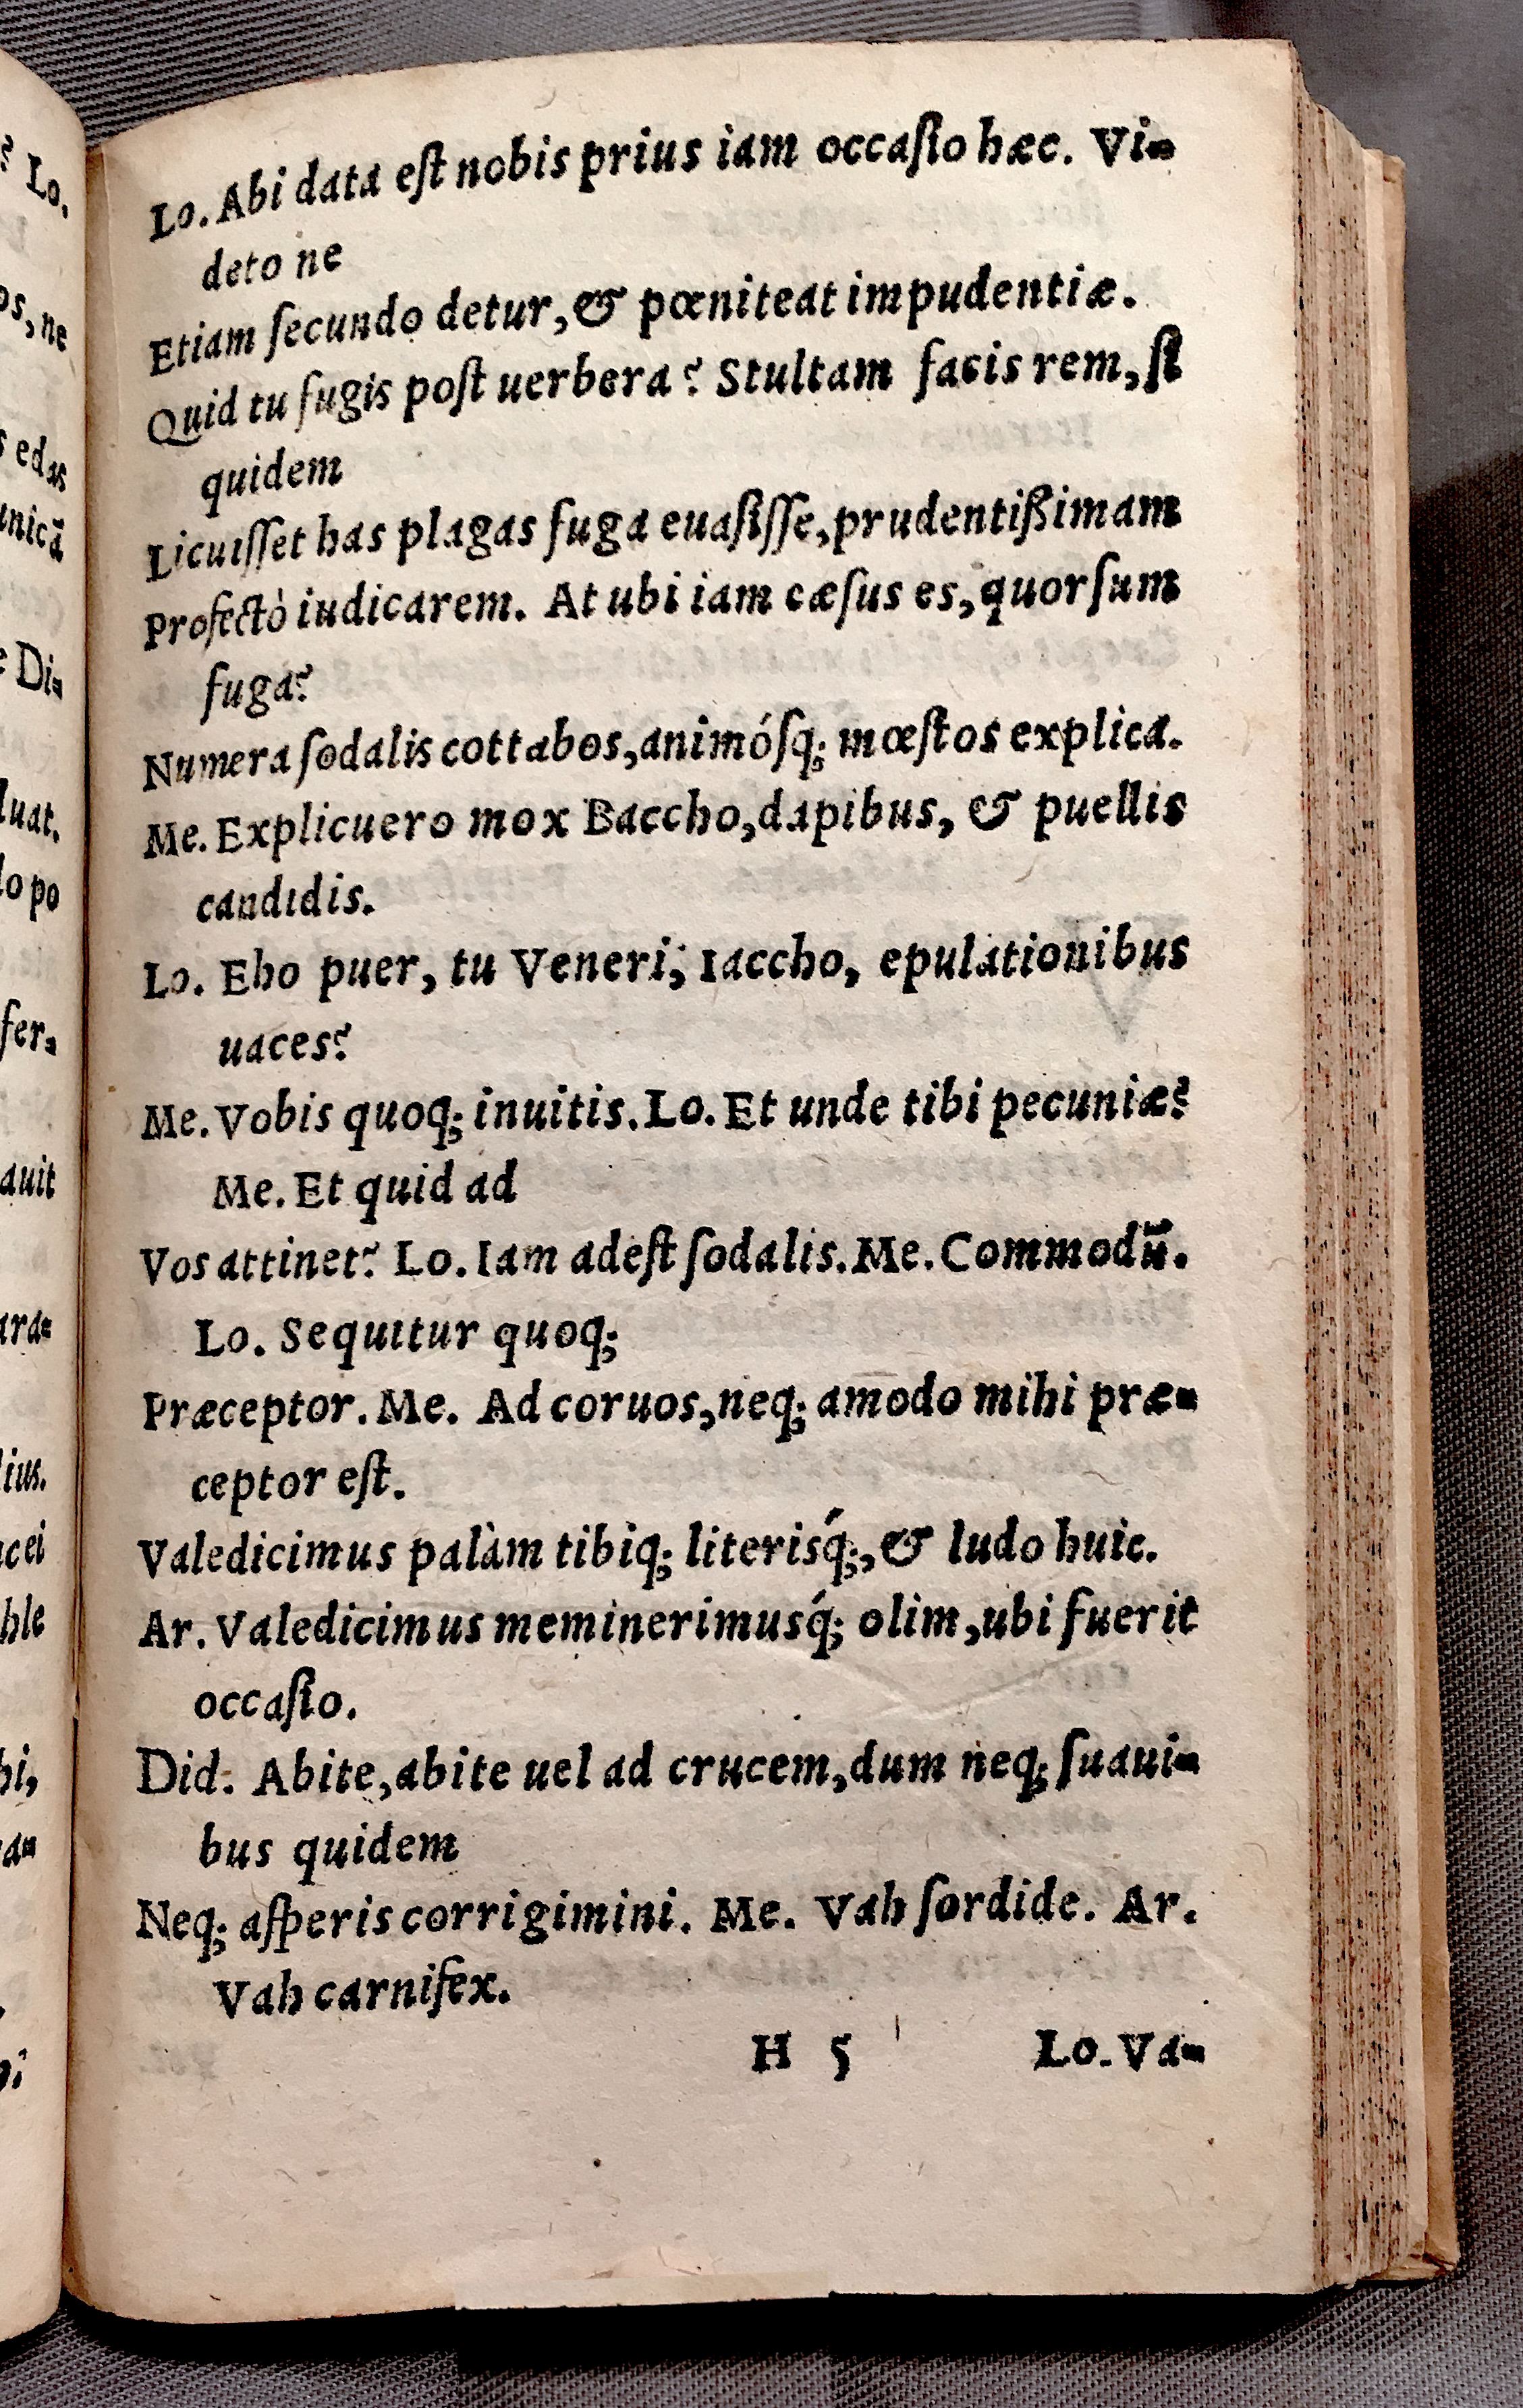 Lo. Abi data eſt nobis prius iam occaſio hæc. Vi-
deto ne
Etiam ſecundo detur, & pœniteat impudentiæ.
Quid tu fugis poſt uerbera? Stultam facis rem, ſi
quidem
Licuiſſet has plagas fuga euaſiſſe, prudentißimam
Profectò iudicarem. At ubi iam cæſus es, quorſum
fuga?
Numera ſodalis cottabos, animóſq; mœſtos explica.
Me. Explicuero mox Baccho, dapibus, & puellis
candidis.
Lo. Eho puer, tu Veneri, Iaccho, epulationibus
uaces?
Me. Vobis quoq; inuitis. Lo. Et unde tibi pecuniæ?
Me. Et quid ad
Vos attinet? Lo. Iam adeſt ſodalis. Me. Commodū.
Lo. Sequitur quoq;
Præceptor. Me. Ad coruos, neq; amodo mihi præ-
ceptor eſt.
Valedicimus palàm tibiq; literisq́;, & ludo huic.
Ar. Valedicimus meminerimusq́; olim, ubi fuerit
occaſio.
Did. Abite, abite uel ad crucem, dum neq; ſuaui-
bus quidem
Neq; aſperis corrigimini. Me. Vah ſordide. Ar.
Vah carnifex.
H 5 Lo. Va-